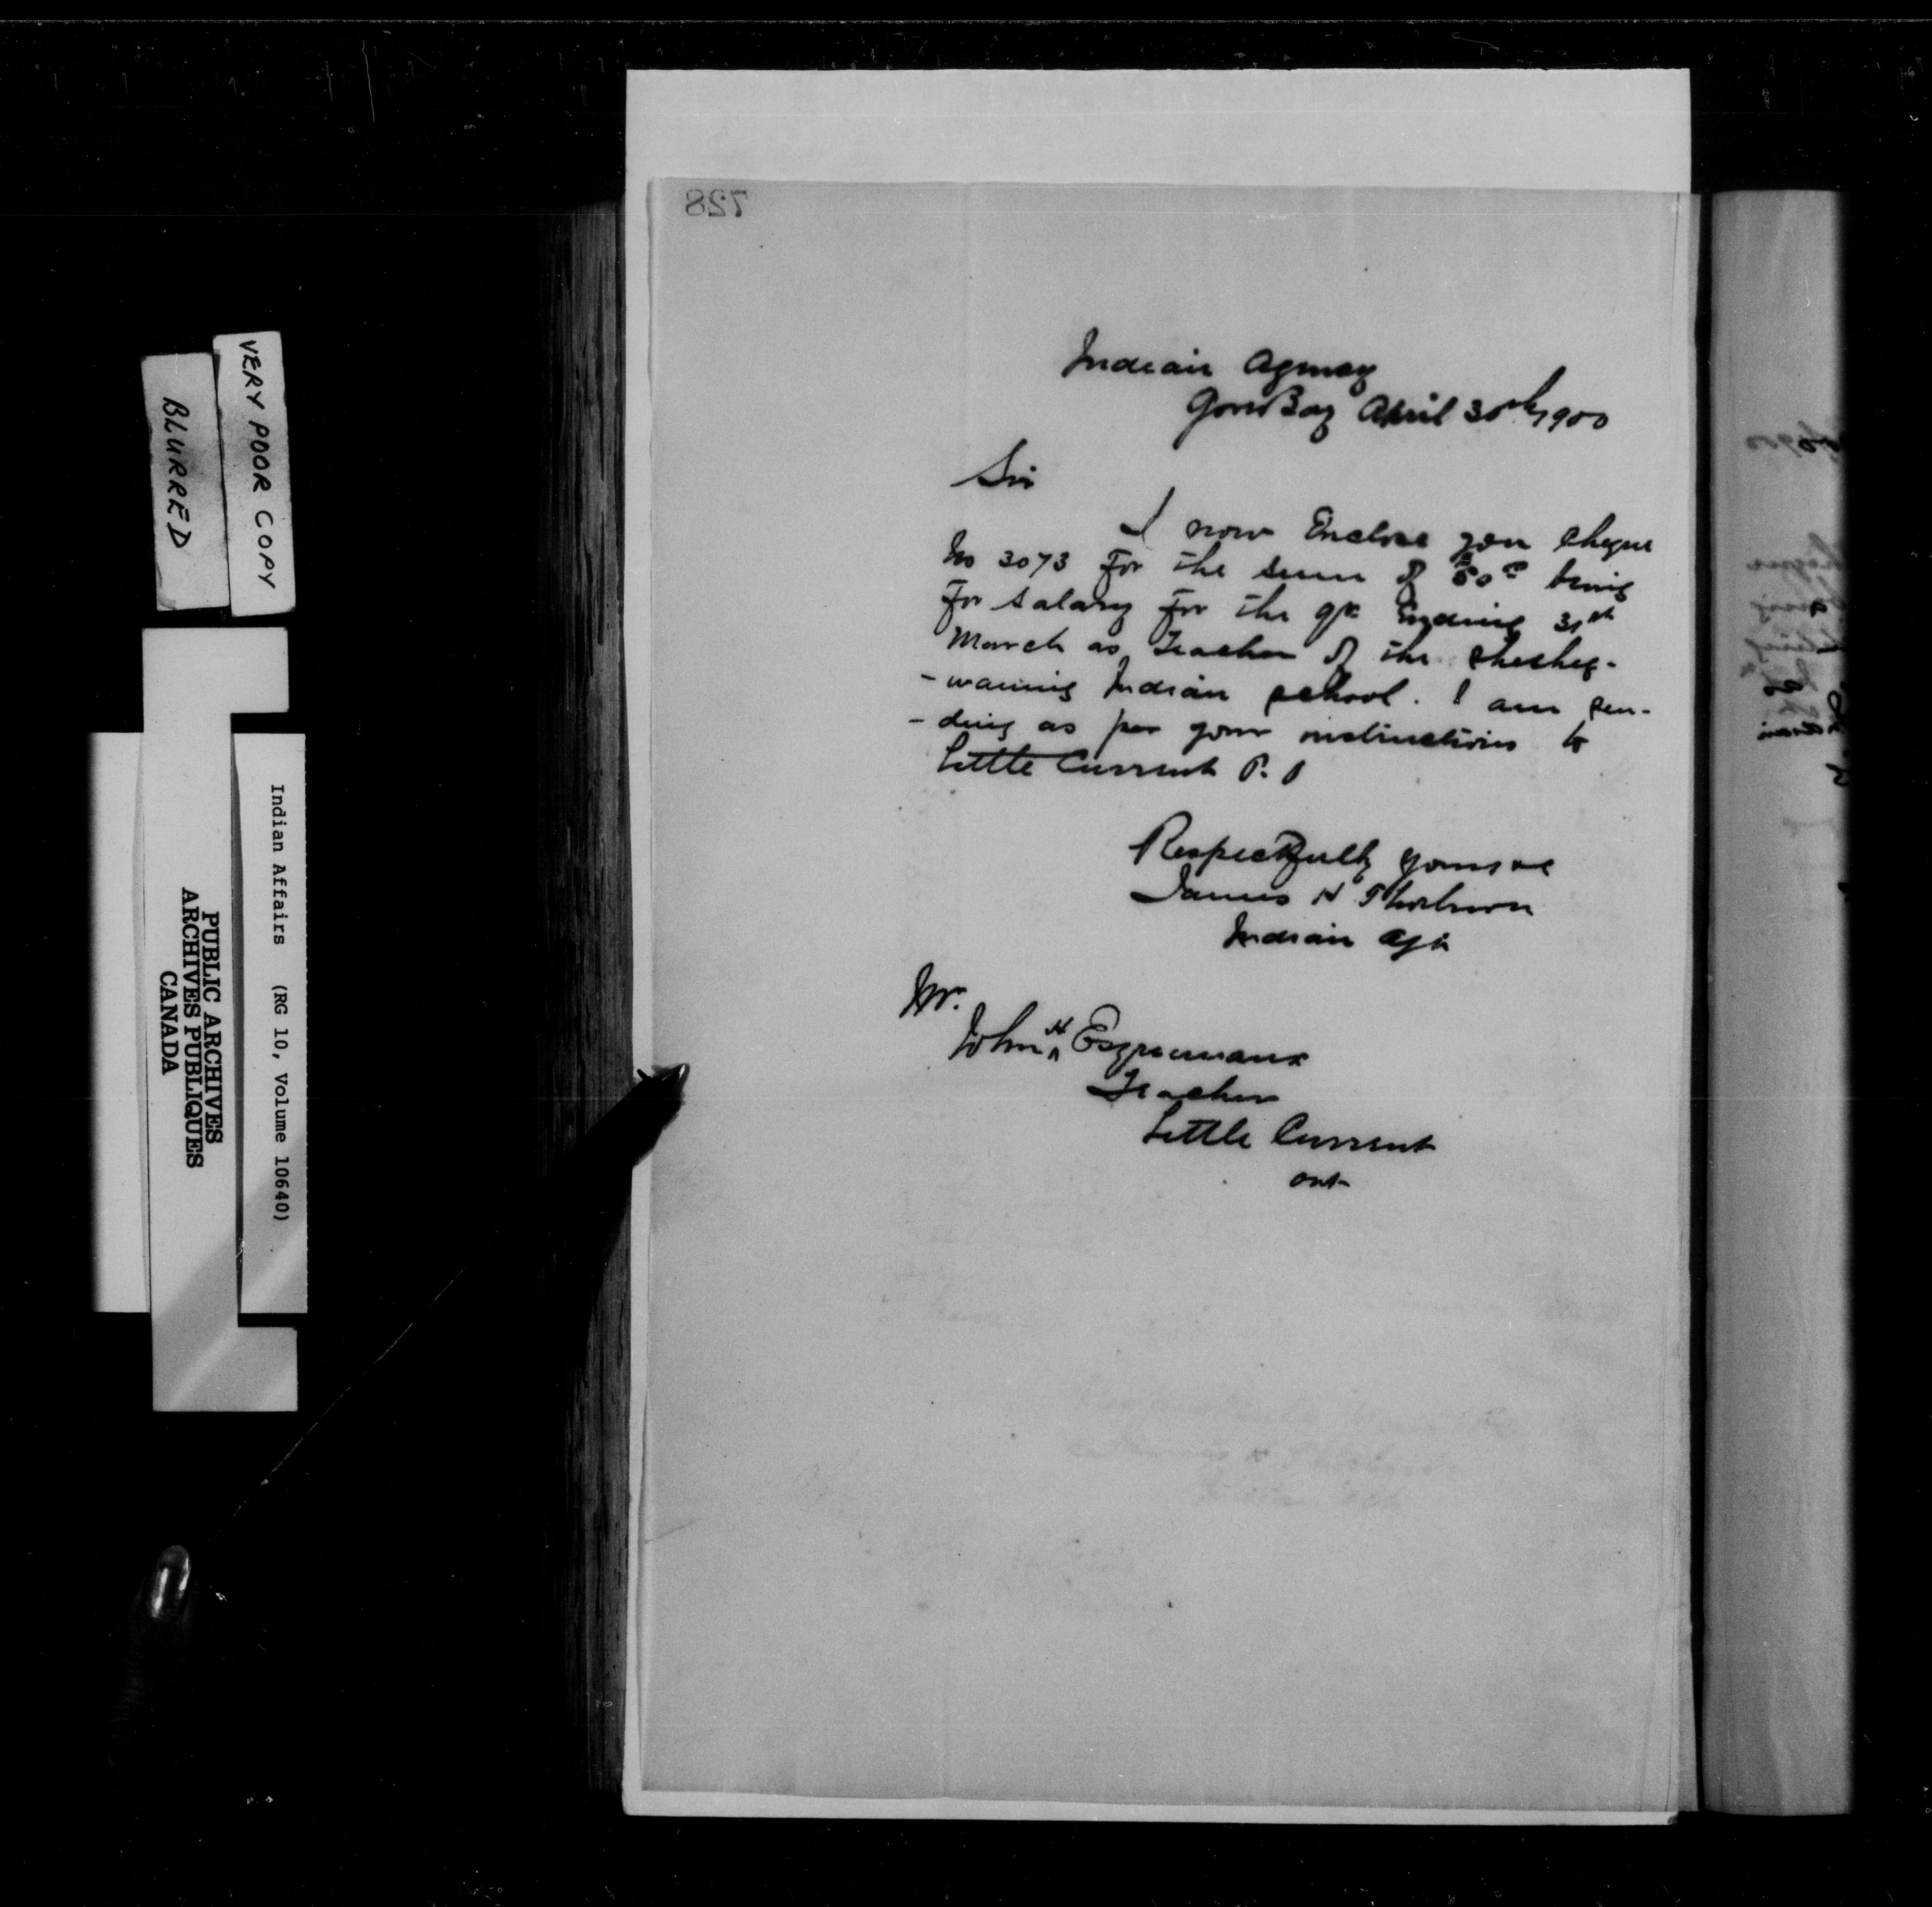 728
Indian Agency
Gore Bay April 30th 1900
Sir
I now Enclose you Cheque
No 3073 For the sum of $50.00 being
For salary For the qr Ending 31st
March as Teacher of the Shesheg-
-waning Indian school. I am sen-
-ding as per your instructions to
Little Current P.O
Respectfully yours
James H Thorburn
Indian Agt
Mr.
John H Esquimaux
Teacher
Little Current
Ont
VERY POOR COPY
BLURRED
Indian Affairs (RG 10, Volume 10640)
PUBLIC ARCHIVES
ARCHIVES PUBLIQUES
CANADA